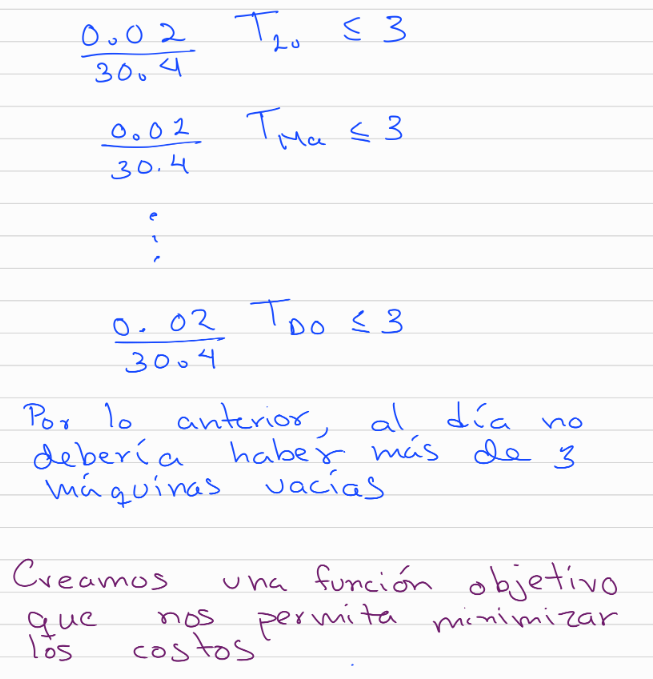 0.02/30.4 T_Lo ≤ 3
0.02/30.4 T_Ma ≤ 3
⋮
0.02/30.4 T_DO ≤ 3
Por lo anterior, al día no
debería haber más de 3
máquinas vacías
Creamos una función objetivo
que nos permita minimizar
los costos